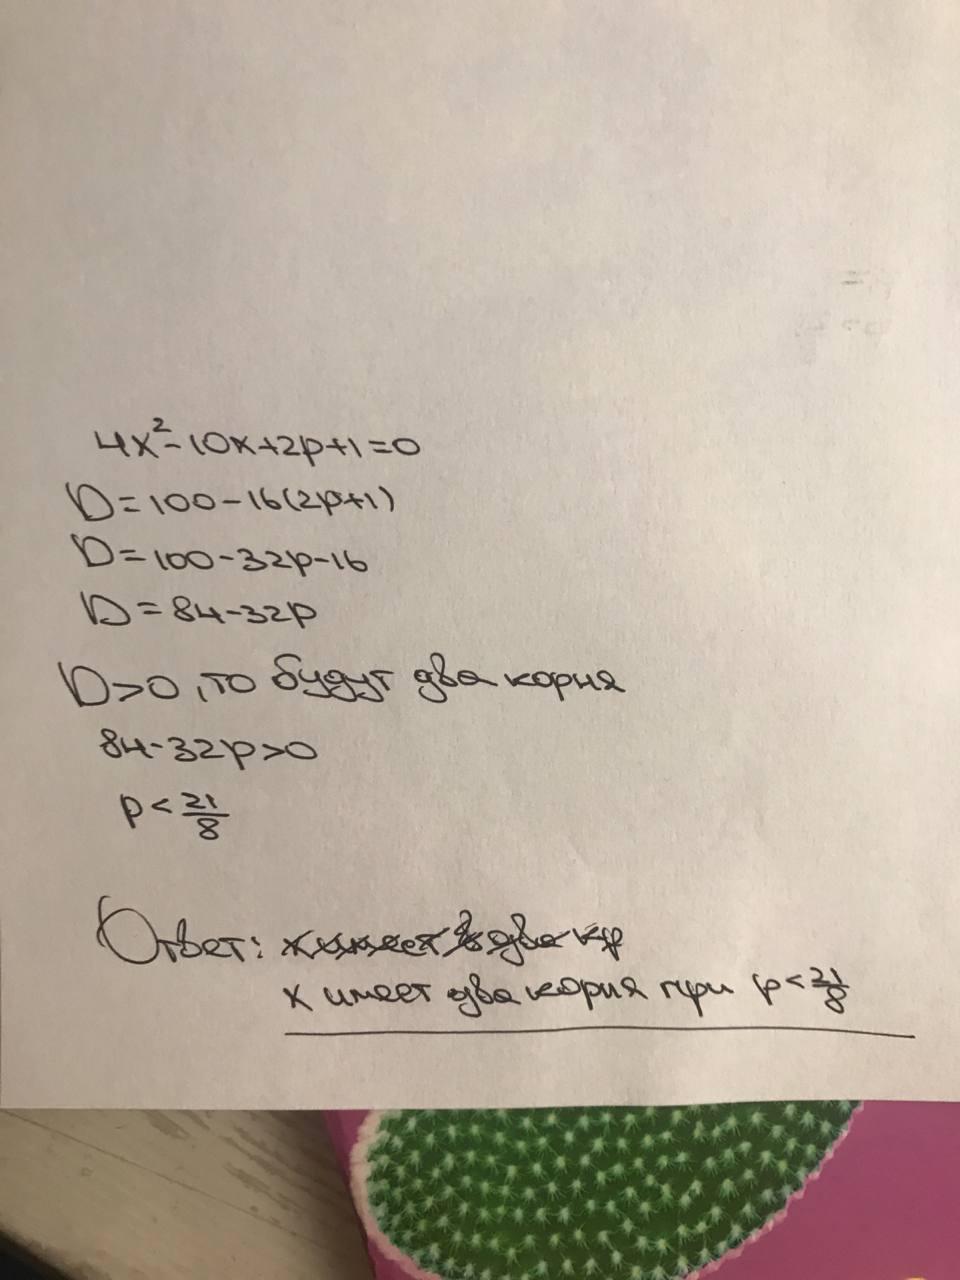 4x²-10x+2p+1=0
D=100-16(2p+1)
D=100-32p-16
D=84-32p
D>0, то будут два корня
84-32p>0
p<21/8
Ответ: х имеет в два кр
х имеет два корня при p<21/8